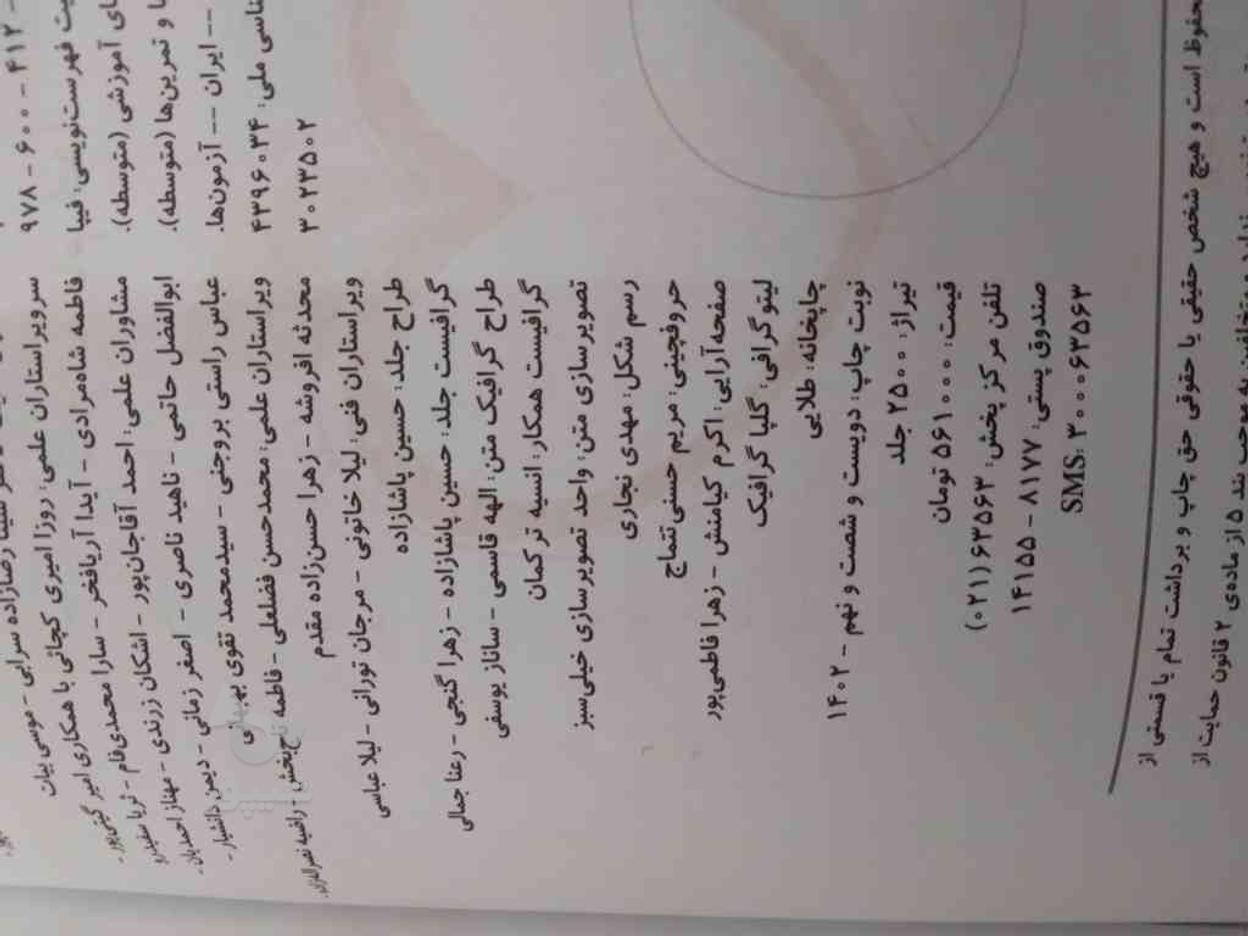 ۹۷۸ - ۶۰۰ - ۴۱۲ -
فهرست‌نویسی: فیپا
آموزشی (متوسطه).
و تمرین‌ها (متوسطه).
-- ایران -- آزمون‌ها.
ملی: ۴۳۹۶۰۳۴
۳۰۲۳۵۰۲
رضازاده سرابی - موسی بیات
سرویراستاران علمی: روزا امیری کچائی با همکاری امیر گیتی‌پور -
فاطمه شاه‌مرادی - آیدا آریافخر - سارا محمدی‌فام - ثریا سفیدرو
مشاوران علمی: احمد آقاجان‌پور - اشکان زرندی - مهناز احمدیان -
ابوالفضل حاتمی - ناهید ناصری - اصغر زمانی - دانشیار -
عباس راستی بروجنی - سیدمحمد تقوی
ویراستاران علمی: محمدحسن فضلعلی - فاطمه تاج‌بخش -
محدثه افروشه - زهرا حسن‌زاده مقدم
ویراستاران فنی: لیلا خاتونی - مرجان تورانی - لیلا عباسی
طراح جلد: حسین پاشازاده
گرافیست جلد: حسین پاشازاده - زهرا گنجی - رعنا جمالی
طراح گرافیک متن: الهه قاسمی - ساناز یوسفی
گرافیست همکار: انسیه ترکمان
تصویرسازی متن: واحد تصویرسازی خیلی‌سبز
رسم شکل: مهدی نجاری
حروفچینی: مریم حسنی‌تتماج
صفحه‌آرایی: اکرم کیامنش - زهرا فاطمی‌پور
لیتوگرافی: گلپا گرافیک
چاپخانه: طلایی
نوبت چاپ: دویست و شصت و نهم - ۱۴۰۲
تیراژ: ۲۵۰۰ جلد
قیمت: ۵۶۱۰۰۰ تومان
تلفن مرکز پخش: ۶۳۵۶۳(۰۲۱)
صندوق پستی: ۸۱۷۷ - ۱۴۱۵۵
SMS: ۳۰۰۰۶۳۵۶۳
محفوظ است و هیچ شخص حقیقی یا حقوقی حق چاپ و برداشت تمام یا قسمتی از
به موجب بند ۵ از ماده‌ی ۲ قانون حمایت از